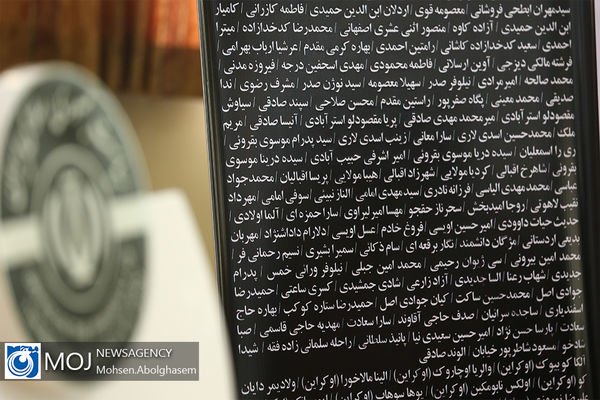 سیدمهران ابطحی فروشانی / معصومه قوی / اردلان ابن الدین حمیدی / فاطمه کازرانی / کامیار
ابن الدین حمیدی / آزاده کاوه / منصور اثنی عشری اصفهانی / محمدرضا کدخدازاده / میترا
احمدی / سعید کدخدازاده کاشانی / رامتین احمدی / بهاره کرمی مقدم / عرشیا ارباب بهرامی
فرشته مالکی دیزجی / آوین ارسلانی / فاطمه محمودی / مهدی اسحقین درجه / فیروزه مدنی /
محمد صالحه / امیر مرادی / نیلوفر صدر / سهیلا معصومه / سید نوژن صدر / مشرف رضوی / ندا
صدیقی / محمد معینی / پگاه صفرپور / راستین مقدم / محسن صلاحی / سپند صادقی / سیاوش
مقصودلو استرآبادی / میرمحمد مهدی صادقی / پریا مقصودلو استرآبادی / آنیسا صادقی / مریم
ملک / محمدحسین اسدی لاری / زینب اسدی لاری / سارا ممانی / سید پدرام موسوی بفروئی /
ری را اسمعلیان / سیده درینا موسوی بفروئی / امیر اشرفی حبیب آبادی / سیده درینا موسوی
بفروئی / شاهرخ اقبالی / کردیا مولایی / شهرزاد اقبالی / هیبا مولایی / پریسا اقبالیان / محمدجواد
عباسی / محمدمهدی الیاسی / فرزانه نادری / سید مهدی امامی / الناز نبیئی / سوفی امامی / مهرداد
نقیب لاهوتی / روجا امیدبخش / سحرناز حقجو / مهسا امیرلیراوی / سارا حمزه ای / آلما اولادی /
حدیث حیات داوودی / امیرحسین اویسی / فروغ خادم / عسل اویسی / دلارام داداش‌نژاد / مهربان
بدیعی اردستانی / مژگان دانشمند / نگار برقعه ای / سام ذکائی / سمیرا بشیری / نسیم رحمانی فر /
محمد امین بیروتی / سی زیوان رحیمی / محمد امین جبلی / نیلوفر ورانی خمس / پدرام
جدیدی / شهاب رعنا / السا جدیدی / آزاد زارعی / شادی جمشیدی / کسری ساعتی / حمیدرضا
جوادی اصل / محمدحسین ساکت / کیان جوادی اصل / حمیدرضا ستاره کوکب / بهاره حاج
اسفندیاری / ساجده سرائیان / صدف حاجی آقاوند / سارا سعادت / مهدیه حاجی قاسمی / صبا
سعادت / پارسا حسن نژاد / امیرحسین سعیدی نیا / پانیذ سلطانی / راحله سلمانی زاده فقه / شیدا
شادخو / مسعود شاطرپور خیابان / الوند صادقی
(اوکراین) / والریا اوچاروک (اوکراین) / الینا مالاخورا (اوکراین) / ولادیمر دایان
(اوکراین) / اولکس نایومکین (اوکراین)
MOJ NEWSAGENCY
Mohsen.Abolghasem